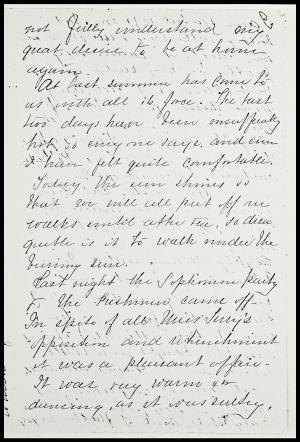 not fully understand my
great desire to be at home
again.
At last summer has come to
us with all its force. The last
two days have been insufferably
hot so every one says, and even
I have felt quite comfortable.
Today the sun shines so
that we will all put off our
walks until after tea, so
is it to walk under the
burning sun.
Last night the Sophomore party
to the Freshmen came off.
In spite of all Miss
opposition and
it was a pleasant affair.
It was very warm for
dancing, as it was sultry,